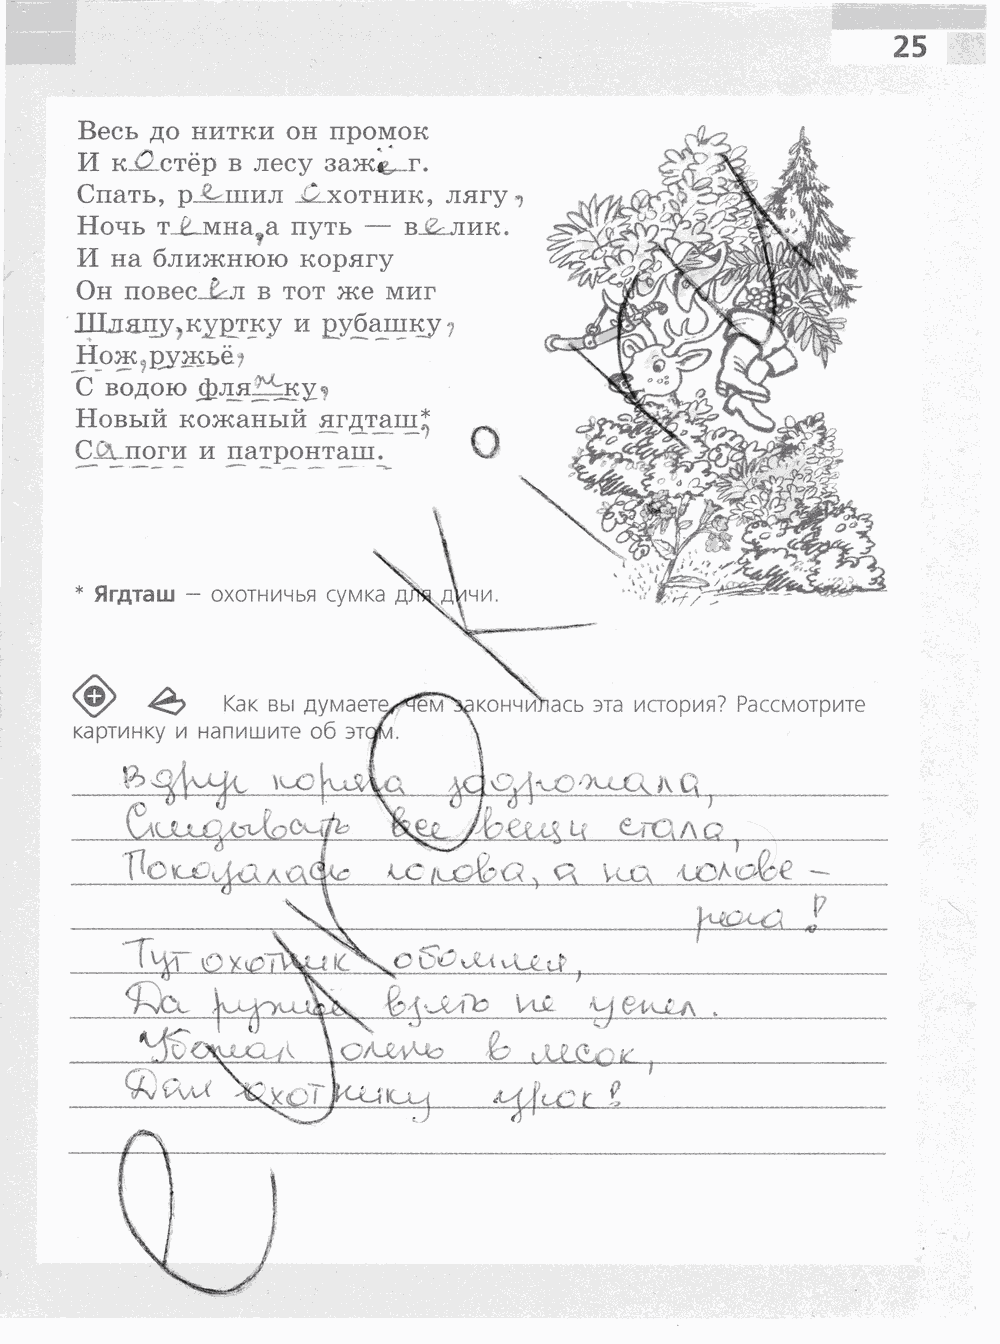 25
Весь до нитки он промок
И костёр в лесу зажёг.
Спать, решил охотник, лягу,
Ночь темна, а путь — велик.
И на ближнюю корягу
Он повесил в тот же миг
Шляпу, куртку и рубашку,
Нож, ружьё,
С водою фляжку,
Новый кожаный ягдташ*,
Сапоги и патронташ.
* Ягдташ — охотничья сумка для дичи.
Как вы думаете, чем закончилась эта история? Рассмотрите
картинку и напишите об этом.
Вдруг коряга задрожала,
Скидывать все вещи стала,
Показалась голова, а на голове –
рога!
Тут охотник обомлел,
Да ружьё взять не успел.
Убежал олень в лесок,
Дал охотнику урок!